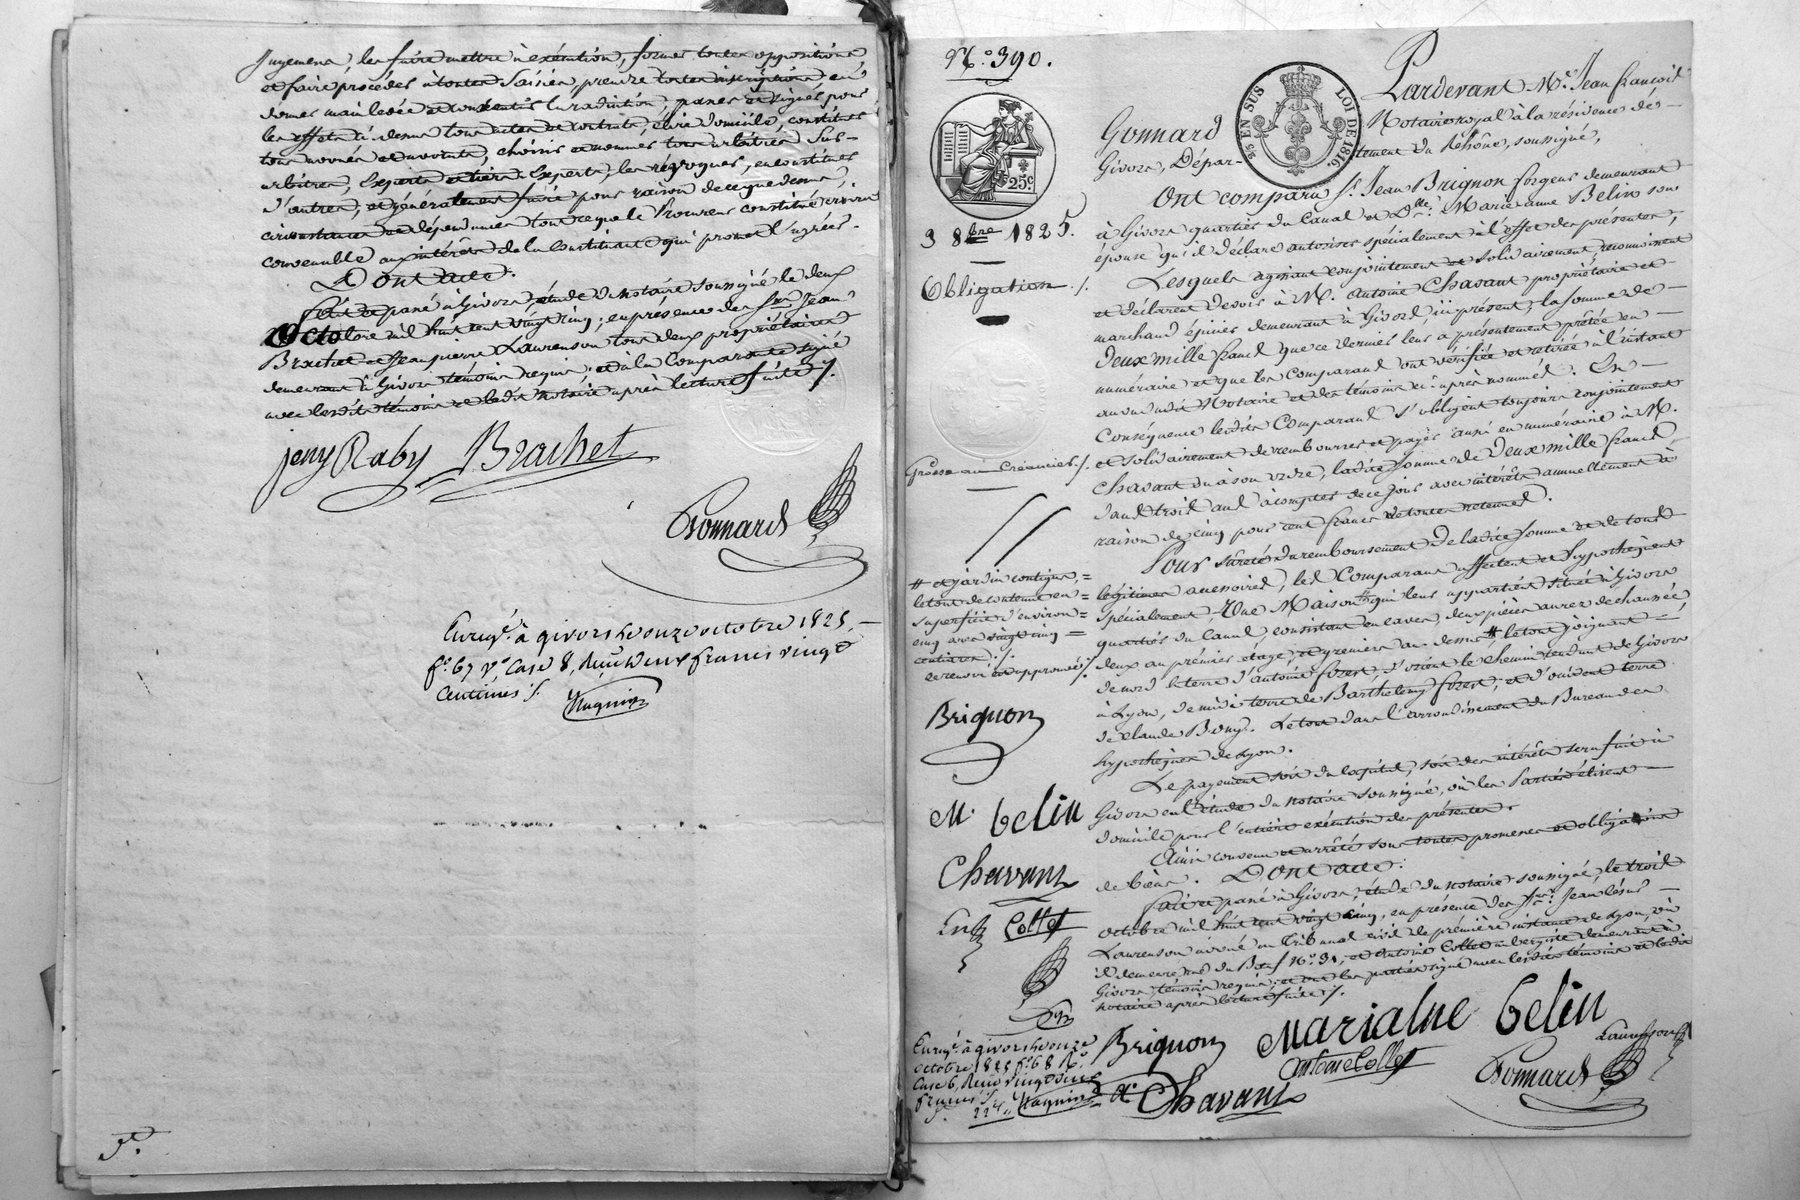 Jugemens, les faire mettre à exécution, former toutes oppositions
et faire procéder à toutes saisies, prendre toutes inscriptions en
donner main levée et consentir la radiation, passer et signer pour
les effets ci-dessus tous actes et contrats, élire domicile, constituer
tous avoués et avocats, choisir et nommer tous arbitres, sur-
arbitres, experts et tiers-experts, les révoquer, en constituer
d'autres, et généralement faire pour raison de ce que dessus,
circonstances et dépendances tout ce que le Procureur constitué croira
convenable aux intérêts de la constituante qui promet l'agréer.
Dont acte.
Fait et passé à Givors, étude du notaire soussigné le deux
Octobre mil huit cent vingt cinq, en présence des Srs Jean
Brachet et Jean pierre Laurenson tous deux propriétaires
demeurant à Givors témoins requis, et à la Comparante signé
avec lesdits témoins et ledit notaire après lecture faite ./.
jeny Raby Brachet
Gonnard
Enregé. à givors le onze octobre 1825,
fo. 67 vo. Case 8, Reçu deux francs vingt
centimes ./. Magnin
No. 390.
25 EN SUS LOI DE 1816.
25c.
3 8bre 1825.
Obligation ./.
Grosse au Créancier ./.
# et jardin contigus, =
le tout de contenue en =
superficie d'environ =
cinq ares vingt cinq =
centiares ./.
ce renvoi est approuvé ./.
Brignon
M. belin
Chavant
Collet
Enregé. à givors le onze
octobre 1825 fo. 68 Ro.
Case 6, Reçu vingt deux
francs ./.
22f. Magnin
Pardevant Me. Jean François
Gonnard Notaire royal à la résidence de
Givors, Département du Rhône, soussigné,
Ont comparu Sr. Jean Brignon forgeur demeurant
à Givors quartier du Canal et Dlle. Marieanne Belin son
épouse qu'il déclare autoriser spécialement à l'effet des présentes,
Lesquels agissant conjointement et solidairement reconnaissent
et déclarent devoir à M. Antoine Chavant propriétaire et
marchand épicier demeurant à Givors, ici présent, la somme de
Deux mille francs que ce dernier leur a présentement prêtée en
numéraire et que les Comparans ont vérifiée et retirée à l'instant
au vu dudit Notaire et des témoins ci-après nommés. En
Conséquence lesdits Comparans s'obligent toujours conjointement
et solidairement de rembourser et payer aussi en numéraire à M.
Chavant ou à son ordre, ladite somme de Deux mille francs,
dans trois ans à compter de ce jour avec intérêts annuellement à
raison de cinq pour cent francs de toutes retenues.
Pour sûreté du remboursement de ladite somme et de tous
légitimes accessoires, les Comparans affectent et hypothèquent
spécialement, Une Maison # qui leur appartient située à Givors
quartier du Canal, consistant en caves, deux pièces au rez de chaussée,
deux au premier étage, et grenier au dessus, # le tout joignant
de nord la terre d'Antoine forest, d'orient le chemin tendant de Givors
à Lyon, de midi terre de Barthelemy forest, et d'occident terre
de Claude Bony. Le tout dans l'arrondissement du Bureau des
hypothèques de Lyon.
Le payement soit du Capital, soit des intérêts sera fait à
Givors en l'étude du notaire soussigné, où les Parties élisent
domicile pour l'entière exécution des présentes.
Ainsi convenu et arrêté sous toutes promesses et obligations
de biens. Dont acte.
Fait et passé à Givors, étude du notaire soussigné, le trois
octobre mil huit cent vingt cinq, en présence des Srs. Jean
Laurenson avoué au Tribunal civil de première instance de Lyon, où
il demeure rue du Bœuf No. 31, et Antoine Collet aubergiste demeurant à
Givors témoins requis, et ont les parties signé avec lesdits témoins et ledit
notaire après lecture faite ./.
Brignon Marialne belin Laurenson
Antoine Collet
ae Chavant Gonnard